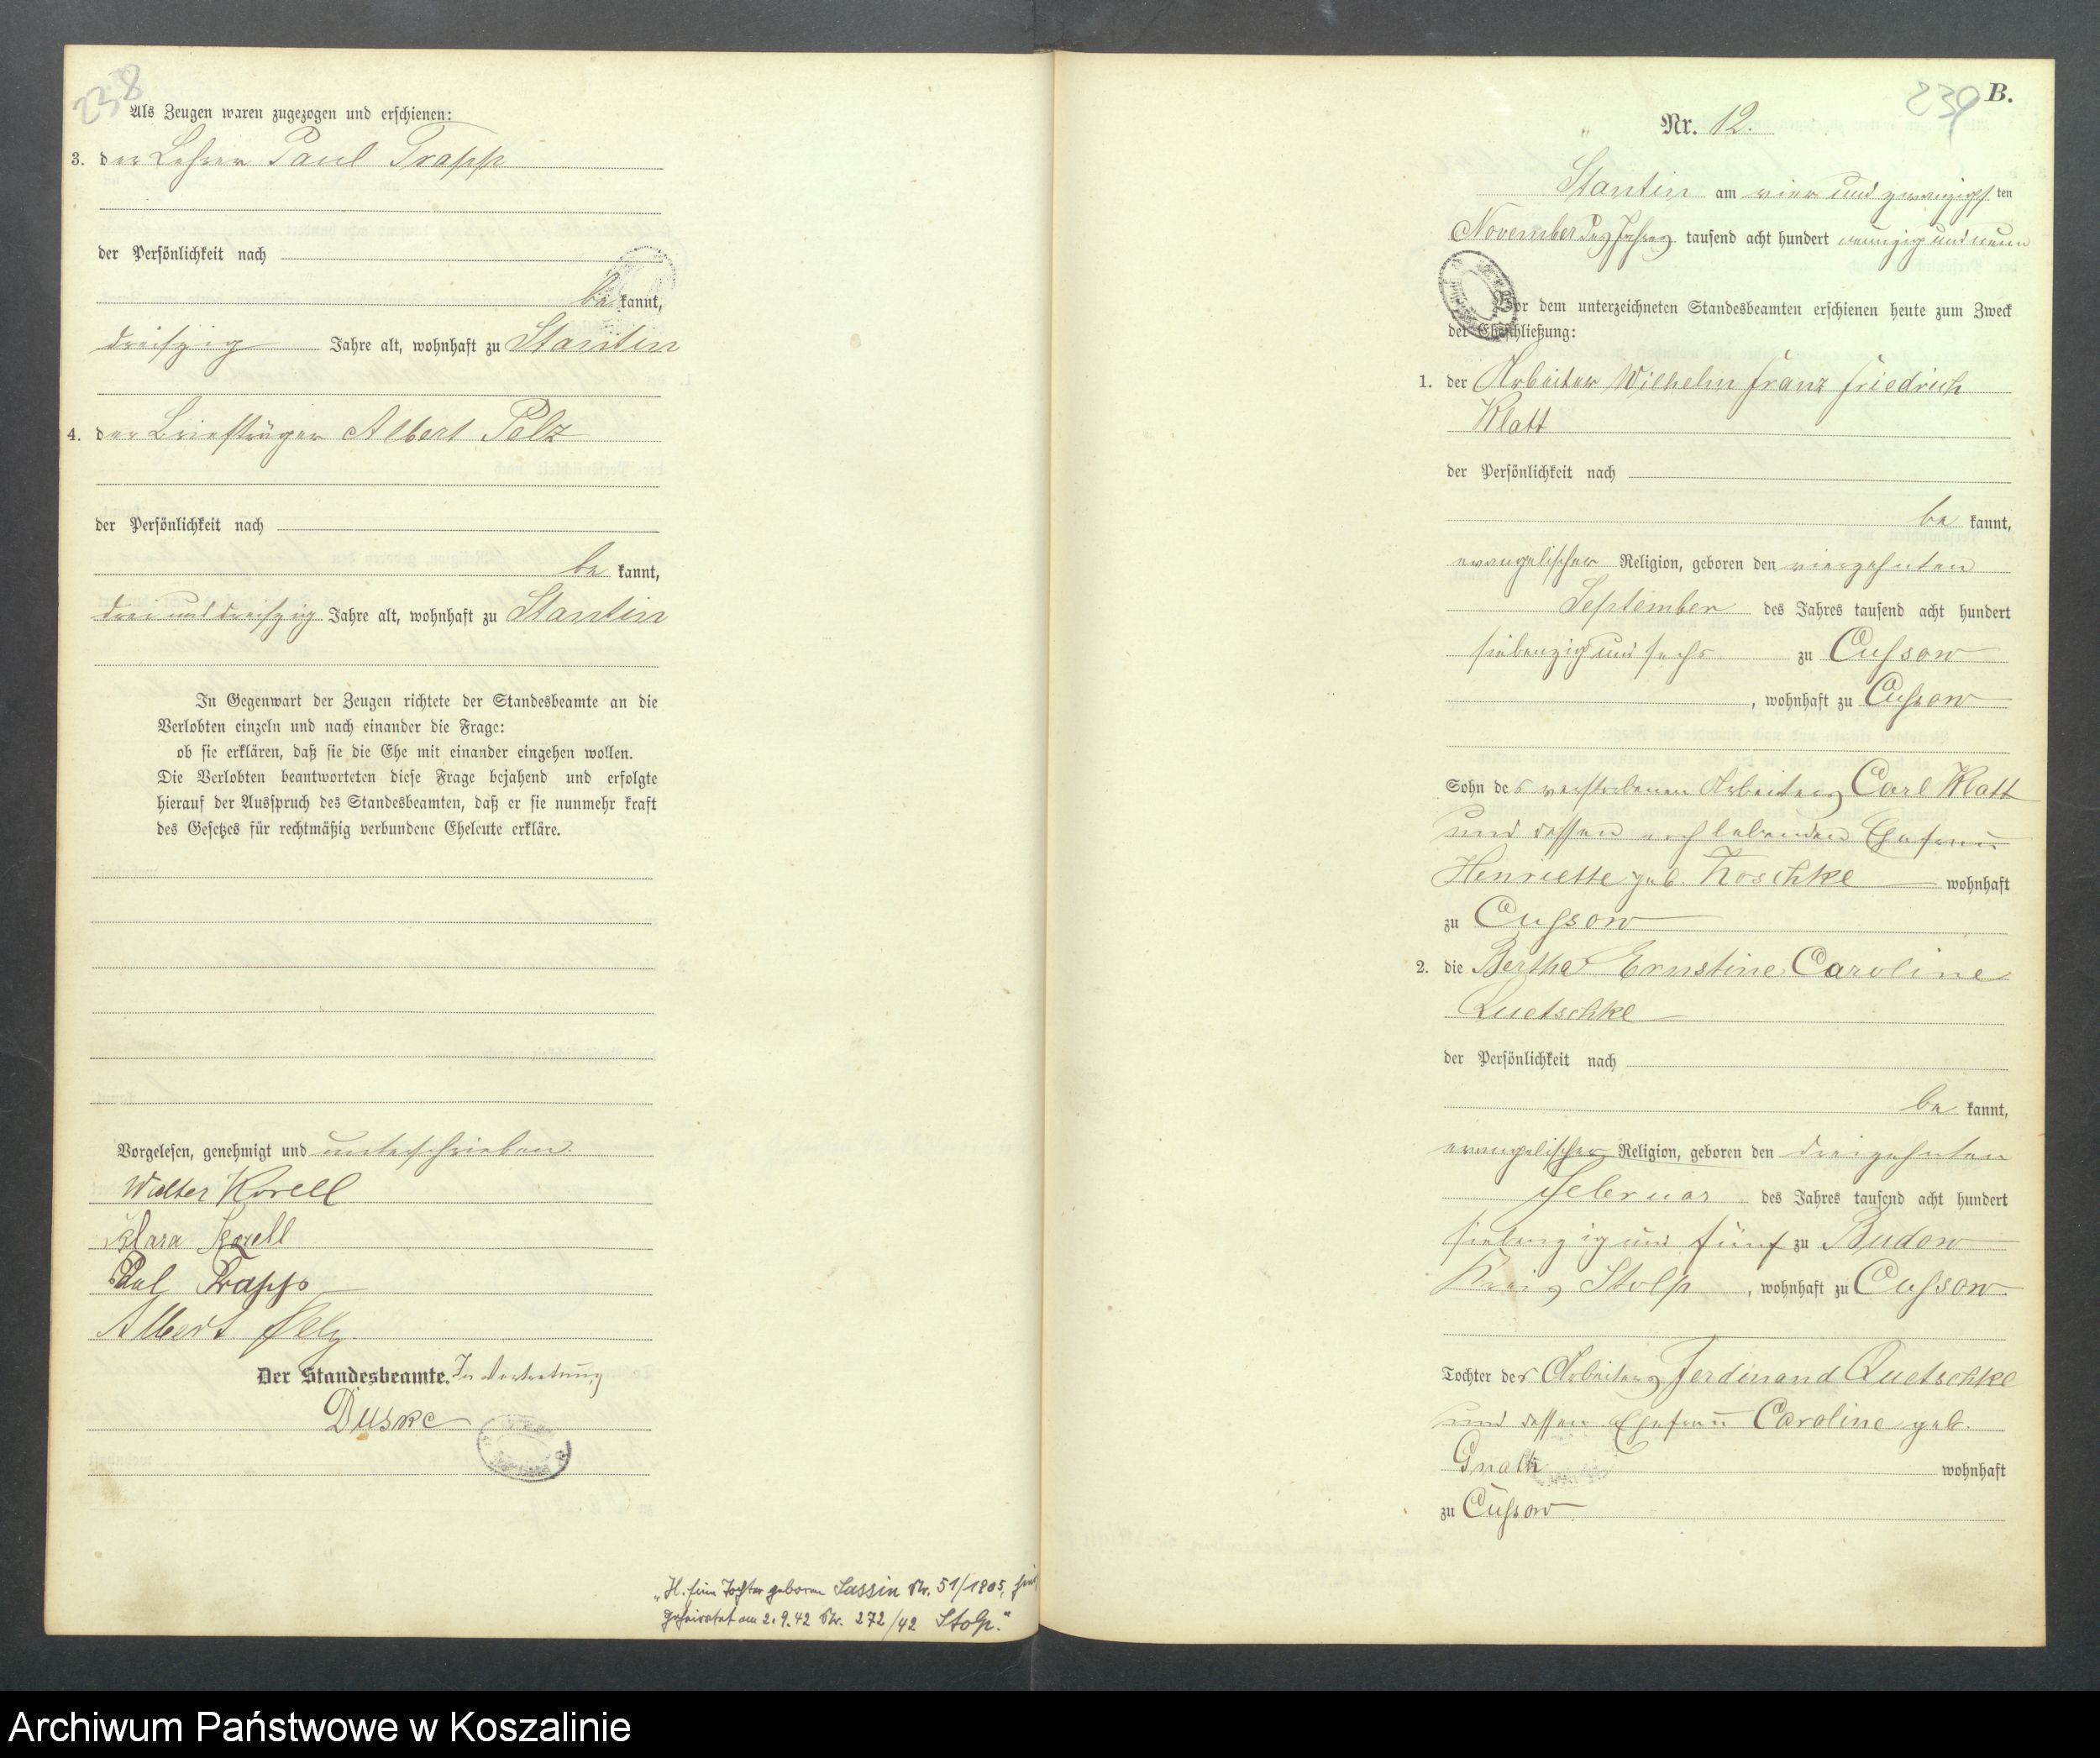 238
Als Zeugen waren zugezogen und erschienen:
3. der Lehrer Paul Trapp
der Persönlichkeit nach
be kannt,
dreißig Jahre alt, wohnhaft zu Stantin
4. der Briefträger Albert Pelz
der Persönlichkeit nach
be kannt,
drei und dreißzig Jahre alt, wohnhaft zu Stantin
In Gegenwart der Zeugen richtete der Standesbeamte an die
Verlobten einzeln und nach einander die Frage:
ob sie erklären, daß sie die Ehe mit einander eingehen wollen.
Die Verlobten beantworteten diese Frage bejahend und erfolgte
hierauf der Ausspruch des Standesbeamten, daß er sie nunmehr kraft
des Gesetzes für rechtmäßig verbundene Eheleute erkläre.
Vorgelesen, genehmigt und unterschrieben.
Walter Korell
Klara Korell
Paul Trapp
Albert Pelz
Der Standesbeamte. In Vertretung
Duske
"H. eine Tochter geboren Sassin Nr. 51/1905,
geheiratet am 2.9.42 Nr. 272/42 Stolp."
239 B.
Nr. 12.
Stantin am vier und zwanzigsten
November des Jahres tausend acht hundert neunzig und neun
Vor dem unterzeichneten Standesbeamten erschienen heute zum Zweck
der Eheschließung:
1. der Arbeiter Wilhelm Franz Friedrich
Klatt
der Persönlichkeit nach
be kannt,
evangelischer Religion, geboren den vierzehnten
September des Jahres tausend acht hundert
siebenzig und sechs zu Cussow
, wohnhaft zu Cussow
Sohn des verstorbenen Arbeiters Carl Klatt
und dessen noch lebenden Ehefrau
Henriette geb. Koschke wohnhaft
zu Cussow
2. die Bertha Ernstine Caroline
Quetschke
der Persönlichkeit nach
be kannt,
evangelischer Religion, geboren den dreizehnten
Februar des Jahres tausend acht hundert
siebenzig und fünf zu Budow
Kreis Stolp, wohnhaft zu Cussow
Tochter des Arbeiters Ferdinand Quetschke
und dessen Ehefrau Caroline geb.
Gnath wohnhaft
zu Cussow
Archiwum Państwowe w Koszalinie